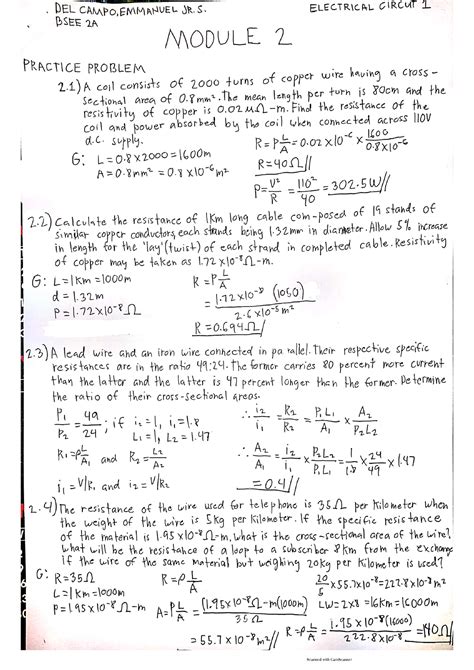 DEL CAMPO, EMMANUEL JR. S.
ELECTRICAL CIRCUIT 1
BSEE 2A
MODULE 2
PRACTICE PROBLEM
2.1) A coil consists of 2000 turns of copper wire having a cross-
sectional area of 0.8mm². The mean length per turn is 80cm and the
resistivity of copper is 0.02 μΩ-m. Find the resistance of the
coil and power absorbed by the coil when connected across 110V
d.c. supply.
G: L = 0.8 x 2000 = 1600m
A = 0.8mm² = 0.8 x 10⁻⁶ m²
R = ρ L/A = 0.02 x 10⁻⁶ x 1600/0.8x10⁻⁶
R = 40Ω//
P = V²/R = 110²/40 = 302.5W//
2.2) Calculate the resistance of 1km long cable com-posed of 19 stands of
similar copper conductors, each strands being 1.32mm in diameter. Allow 5% increase
in length for the 'lay' (twist) of each strand in completed cable. Resistivity
of copper may be taken as 1.72 x 10⁻⁸ Ω-m.
G: L = 1km = 1000m
d = 1.32m
ρ = 1.72 x 10⁻⁸ Ω
R = ρ L/A
= 1.72 x 10⁻⁸ (1050)/2.6 x 10⁻⁵ m²
R = 0.694Ω//
2.3) A lead wire and an iron wire connected in parallel. Their respective specific
resistances are in the ratio 49:24. The former carries 80 percent more current
than the latter and the latter is 47 percent longer than the former. Determine
the ratio of their cross-sectional areas.
ρ₁/ρ₂ = 49/24; if i₂ = 1, i₁ = 1.8
L₁ = 1, L₂ = 1.47
R₁ = ρ L₁/A₁ and R₂ = L₂/A₂
i₁ = V/R₁ and i₂ = V/R₂
∴ i₂/i₁ = R₂/R₂ = ρ₁L₁/A₁ x A₂/ρ₂L₂
∴ A₂/A₁ = i₂/i₁ x ρ₂L₂/ρ₁L₁ = 1/1.8 x 24/49 x 1.47
= 0.4//
2.4) The resistance of the wire used for telephone is 35Ω per kilometer when
the weight of the wire is 5kg per kilometer. If the specific resistance
of the material is 1.95 x 10⁻⁸ Ω-m, what is the cross-sectional area of the wire?
what will be the resistance of a loop to a subscriber 8km from the exchange
if the wire of the same material but weighing 20kg per kilometer is used?
G: R = 35Ω
L = 1km = 1000m
ρ = 1.95 x 10⁻⁸ Ω-m
R = ρ L/A
A = ρ L/R = (1.95x10⁻⁸ Ω-m(1000m)/35Ω
= 55.7 x 10⁻⁸ m²//
20/5 x 55.7x10⁻⁸ = 222.8x10⁻⁸ m²
LW = 2x8 = 16km = 16000m
R = ρ L/A = 1.95 x 10⁻⁸ (16000)/222.8 x 10⁻⁸ = 140Ω//
Scanned with CamScanner